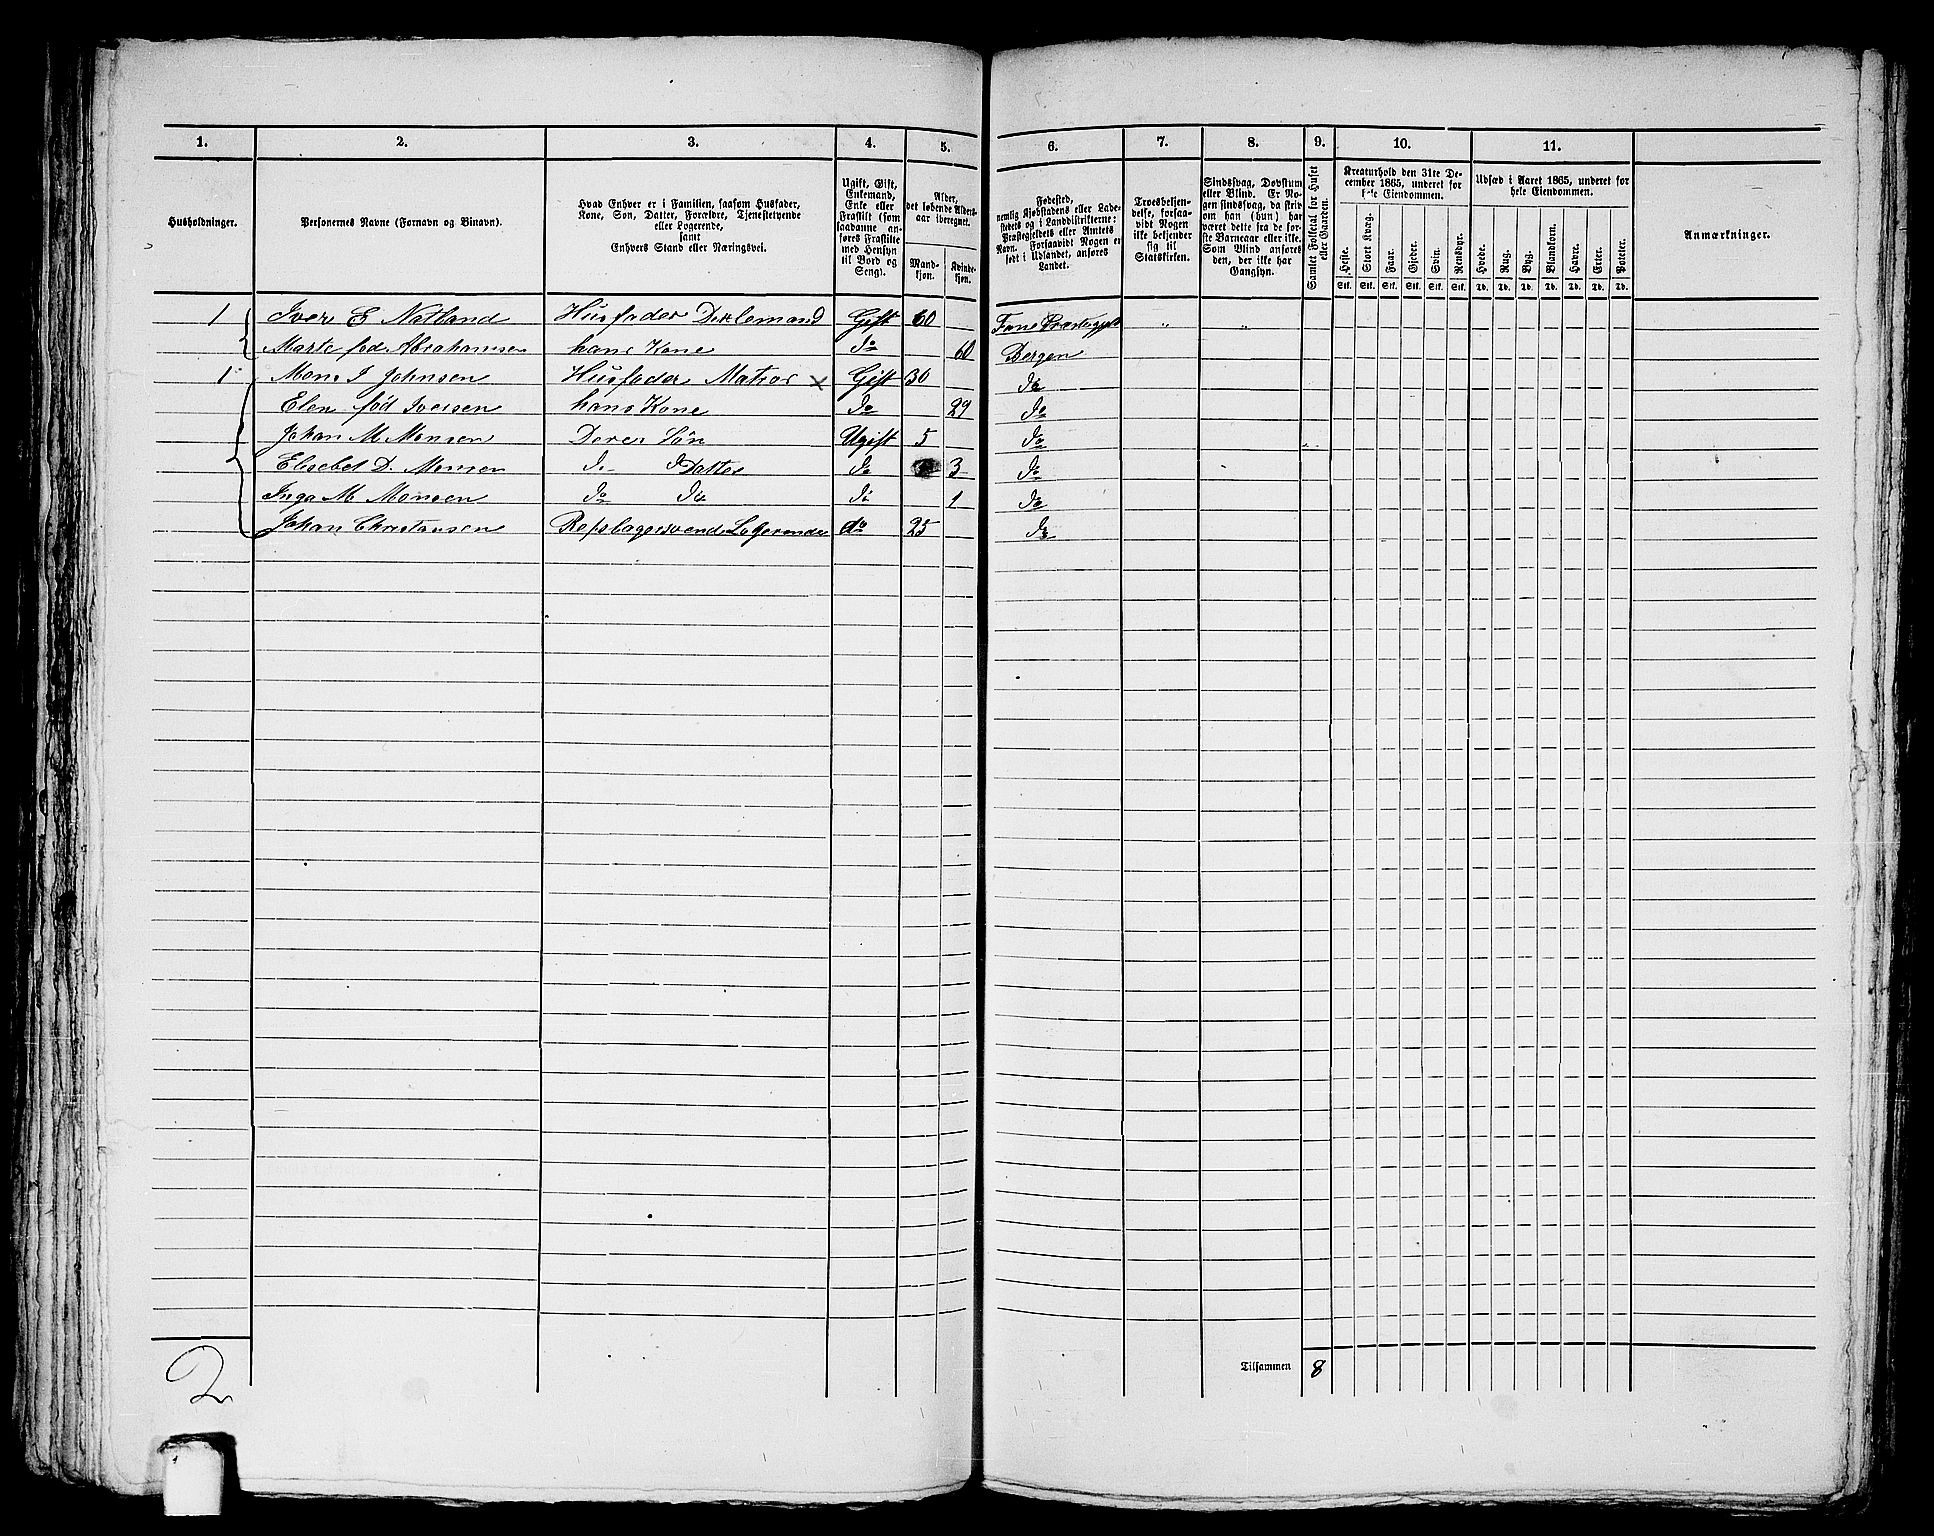 1. 2. 3. 4. 5. 6. 7. 8. 9. 10. 11.
Husholdninger.
Personernes Navne (Fornavn og Binavn).
Hvad Enhver er i Familien, saasom Husfader,
Kone, Søn, Datter, Forældre, Tjenestetyende
eller Logerende,
samt
Enhvers Stand eller Næringsvei.
Ugift, Gift,
Enkemand,
Enke eller
Fraskilt (som
saadanne an-
føres Fraskilte
med Hensyn
til Bord og
Seng).
Alder,
det løbende Alders-
aar iberegnet.
Mand-
kjøn.
Kvinde-
kjøn.
Fødested,
nemlig Kjøbstadens eller Lade-
stedets og i Landdistrikterne:
Præstegjeldets eller Amtets
Navn. Forsaavidt Nogen er
født i Udlandet, anføres
Landet.
Troesbekjen-
delse, forsaa-
vidt Nogen
ikke bekjender
sig til
Statskirken.
Sindssvag, Døvstum
eller Blind. Er No-
gen sindssvag, da skriv
om han (hun) har
været dette fra de før-
ste Barneaar eller ikke.
Som Blind anføres
den, der ikke har
Gangsyn.
Samlet Folketal for Huset
eller Gaarden.
Kreaturhold den 31te De-
cember 1865, underet for
hele Eiendommen.
Heste. Stort Kvæg. Faar. Gjeder. Svin. Rensdyr.
Stk. Stk. Stk. Stk. Stk. Stk.
Udsæd i Aaret 1865, underet for
hele Eiendommen.
Hvede. Rug. Byg. Blandkorn. Havre. Erter. Poteter.
Td. Td. Td. Td. Td. Td. Td.
Anmærkninger.
1 Iver E Natland Husfader Gift 60 Fane " "
Marte fød Abrahamsen hans Kone do 60 Bergen
1 Mons J Johnsen Husfader Matros x Gift 30 do
Elen fød Iversen hans Kone do 29 do
Johan M Monsen Deres Søn Ugift 5 do
Elisebet D. Monsen do Datter do 3 do
Inga M Monsen do do do 1 do
Johan Christansen Repslagersvend Logerende do 25 do
Tilsammen 8
2